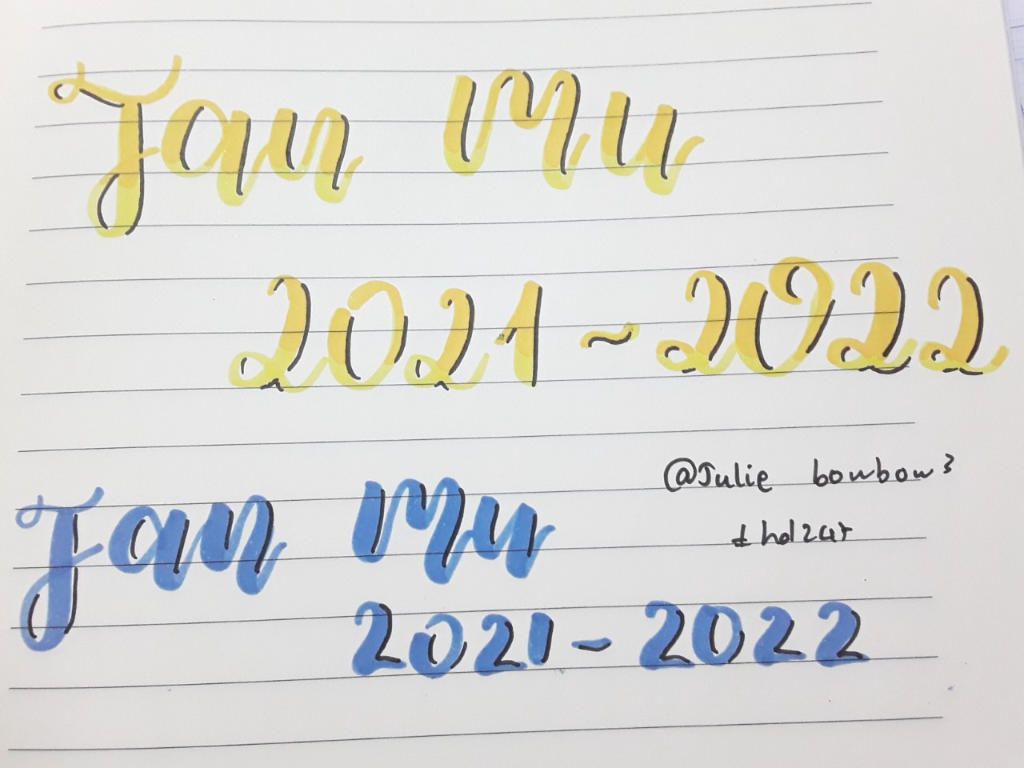 Jan Mu
2021~2022
@Julie bowbow3
Jan Mu
2021-2022